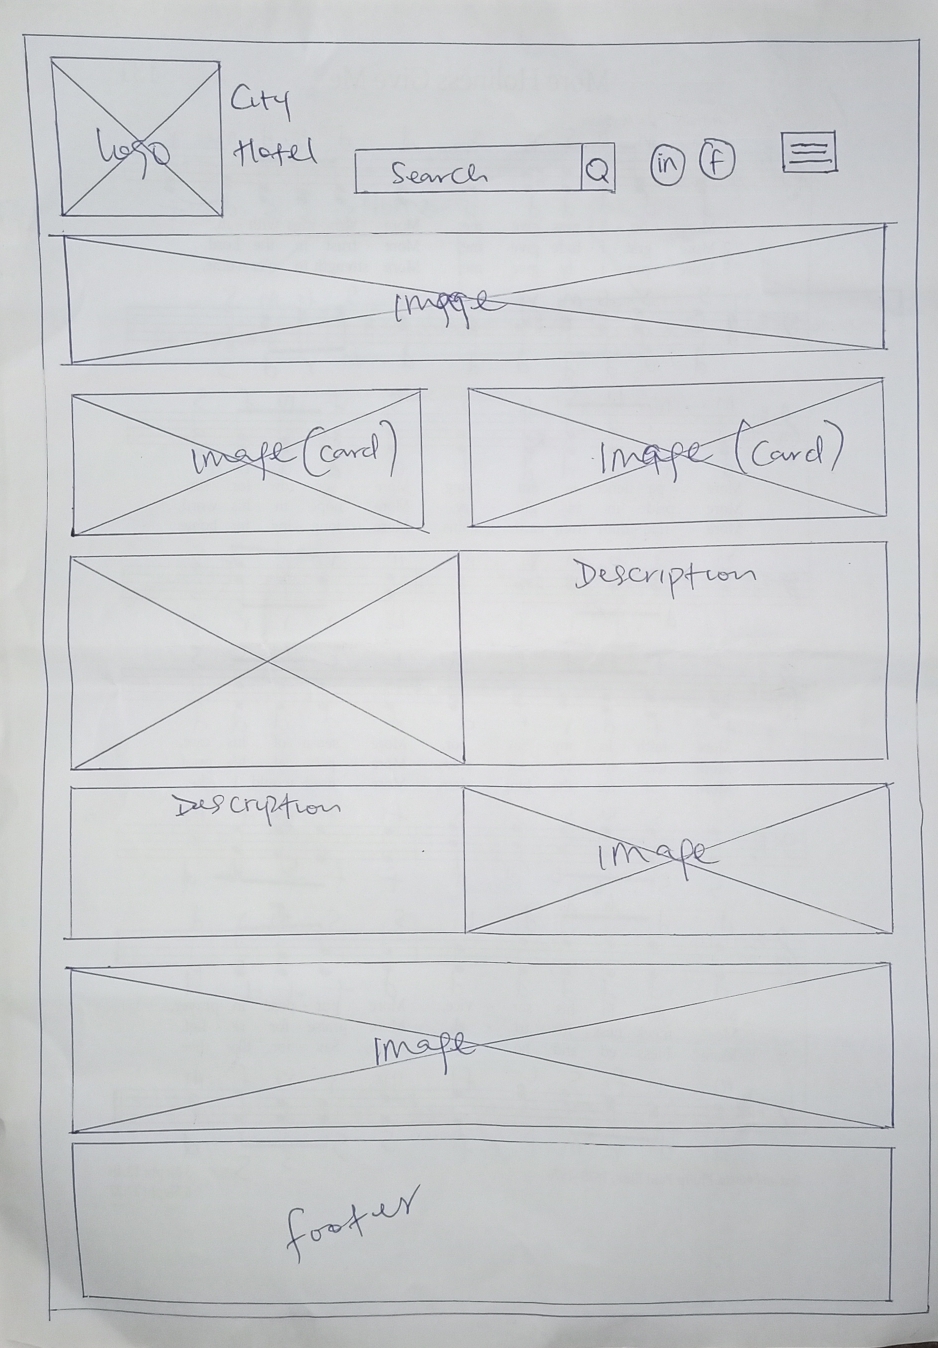 Logo
City
Hotel
Search
in
f
Image
Image (Card)
Image (Card)
Description
Description
Image
Image
footer